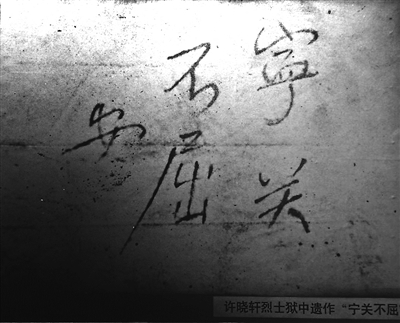 寧关
不屈
安
许晓轩烈士狱中遗作“宁关不屈